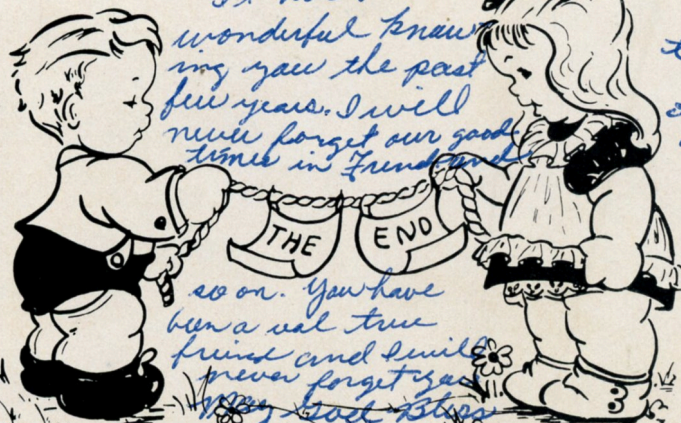 wonderful know
ing you the past
few years. I will
never forget our good
times in French and
THE END
so on. You have
been a real true
friend and I will
never forget you
May God Bless